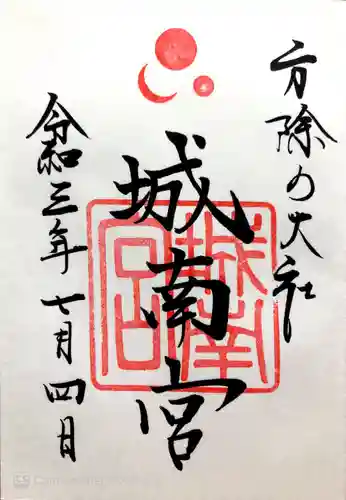 方除の大社
城南宮
令和三年七月四日
城南宮